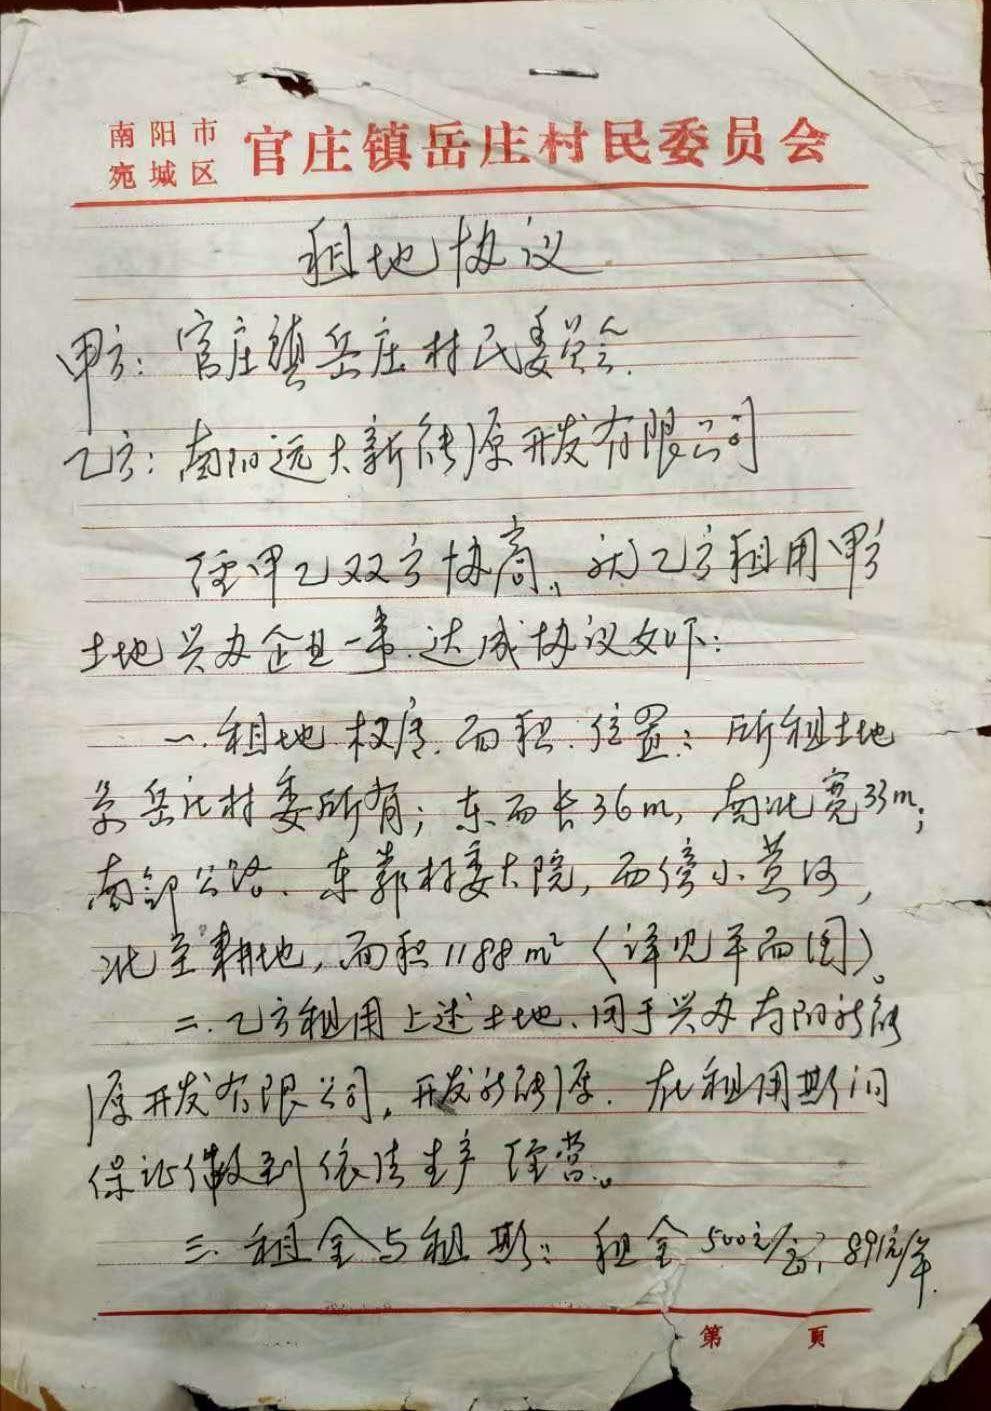 南阳市
宛城区
官庄镇岳庄村民委员会
租地协议
甲方：官庄镇岳庄村民委员会.
乙方：南阳远大新能源开发有限公司
经甲乙双方协商，就乙方租用甲方
土地兴办企业一事.达成协议如下：
一.租地权属.面积.位置：所租土地
系岳庄村委所有；东西长36m，南北宽33m；
南邻公路、东靠村委大院，西傍小黄河，
北至耕地，面积1188m²（详见平面图）。
二.乙方租用上述土地、用于兴办南阳新能
源开发有限公司，开发新能源.在租用期间
保证做到依法生产经营。
三.租金与租期：租金500元/亩，891元/年.
第 页